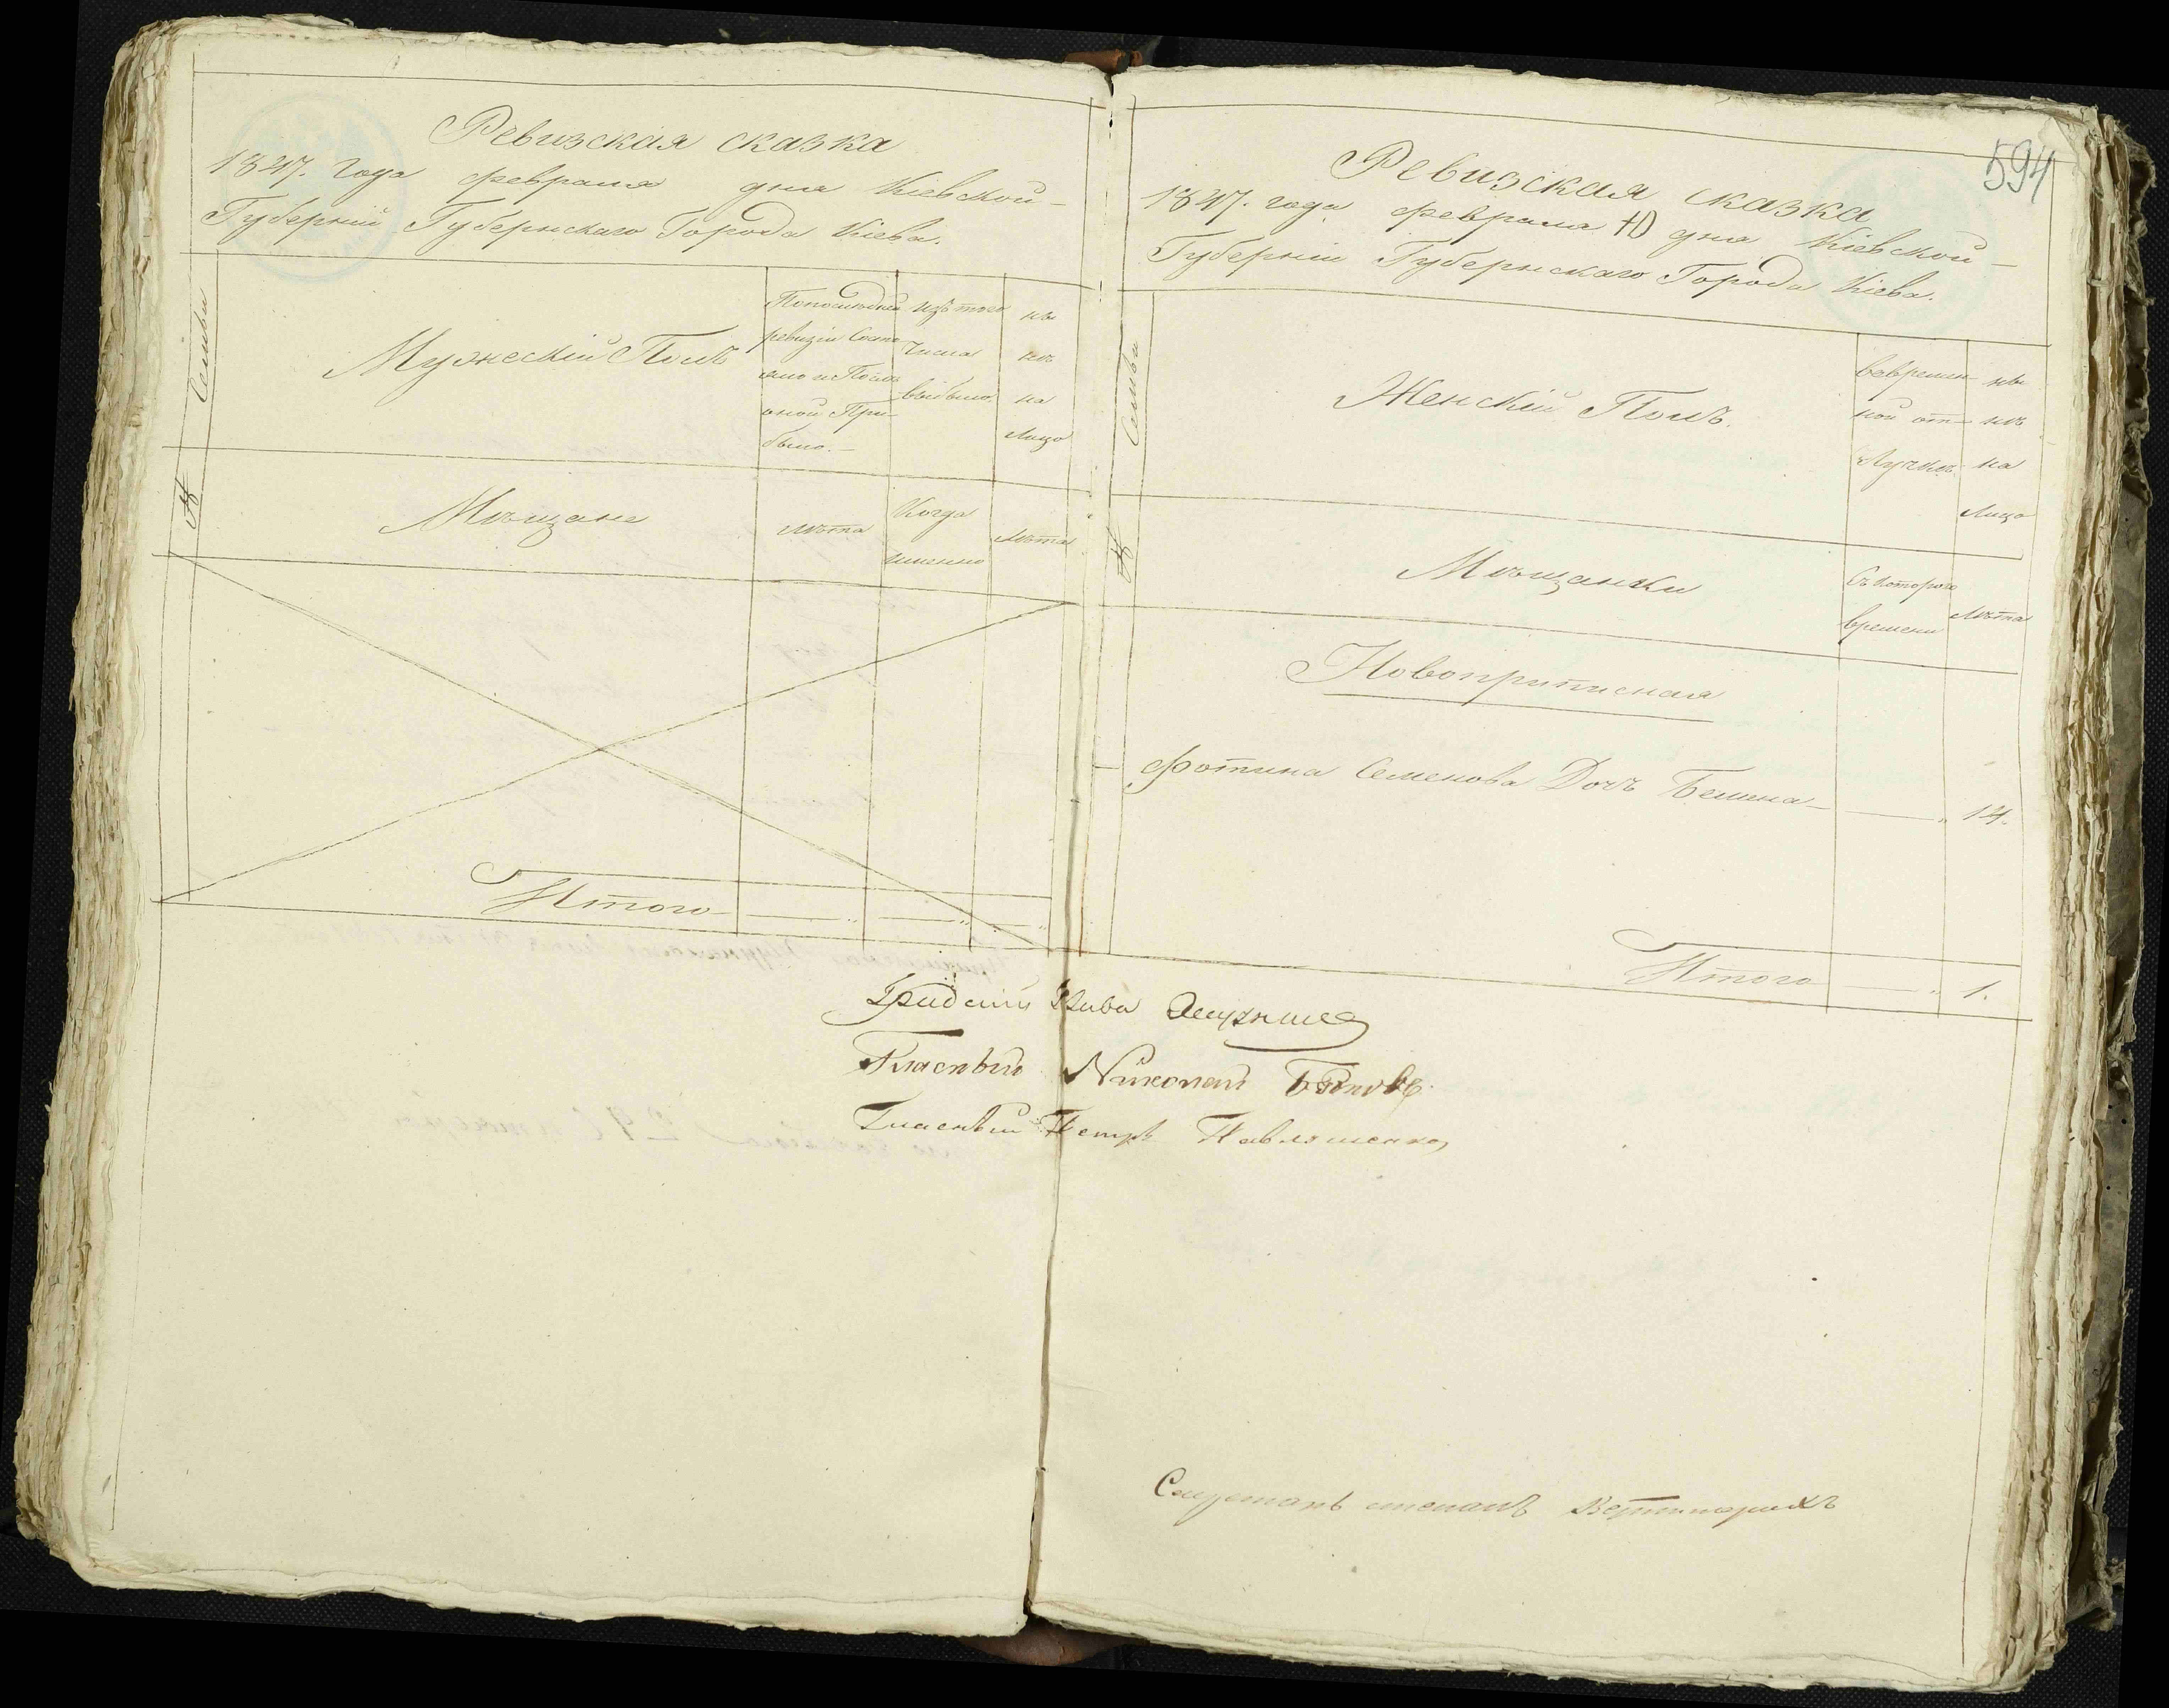 Ревизская сказка
1847. года февраля дня Кіевской
Губерніи Губернскаго Города Кіева.
Семьи
Мужескій Полъ
По последней
ревизіи Состо
яло и После
оной При-
было.
Изъ того
Числа
выбыло
ны
нѣ
на
Лицо
№
Мѣщане
Лѣта
Когда
именно
Лѣта
Итого
594
Ревизская сказка
1847. года февраля 10 дня Кіевской
Губерніи Губернскаго Города Кіева.
Семьи
Женскій Полъ.
Вовремен-
ной от-
Лучкѣ
ны
нѣ
на
Лицо
№
Мѣщанки
Съ которого
времени
Лѣта
Новоприписная
Фотина Семенова Дочь 14.
Итого 1.
Гласный Николай
Гласный Петръ Павлошенко